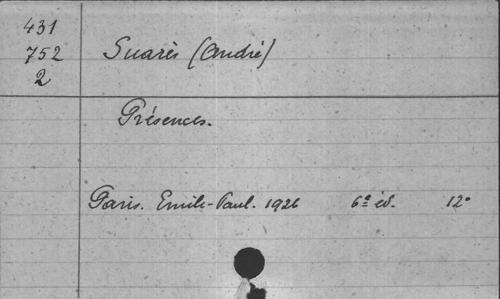 431
752
2
Suarès (André)
Présences.
Paris. Emile-Paul. 1926 6e éd. 12°